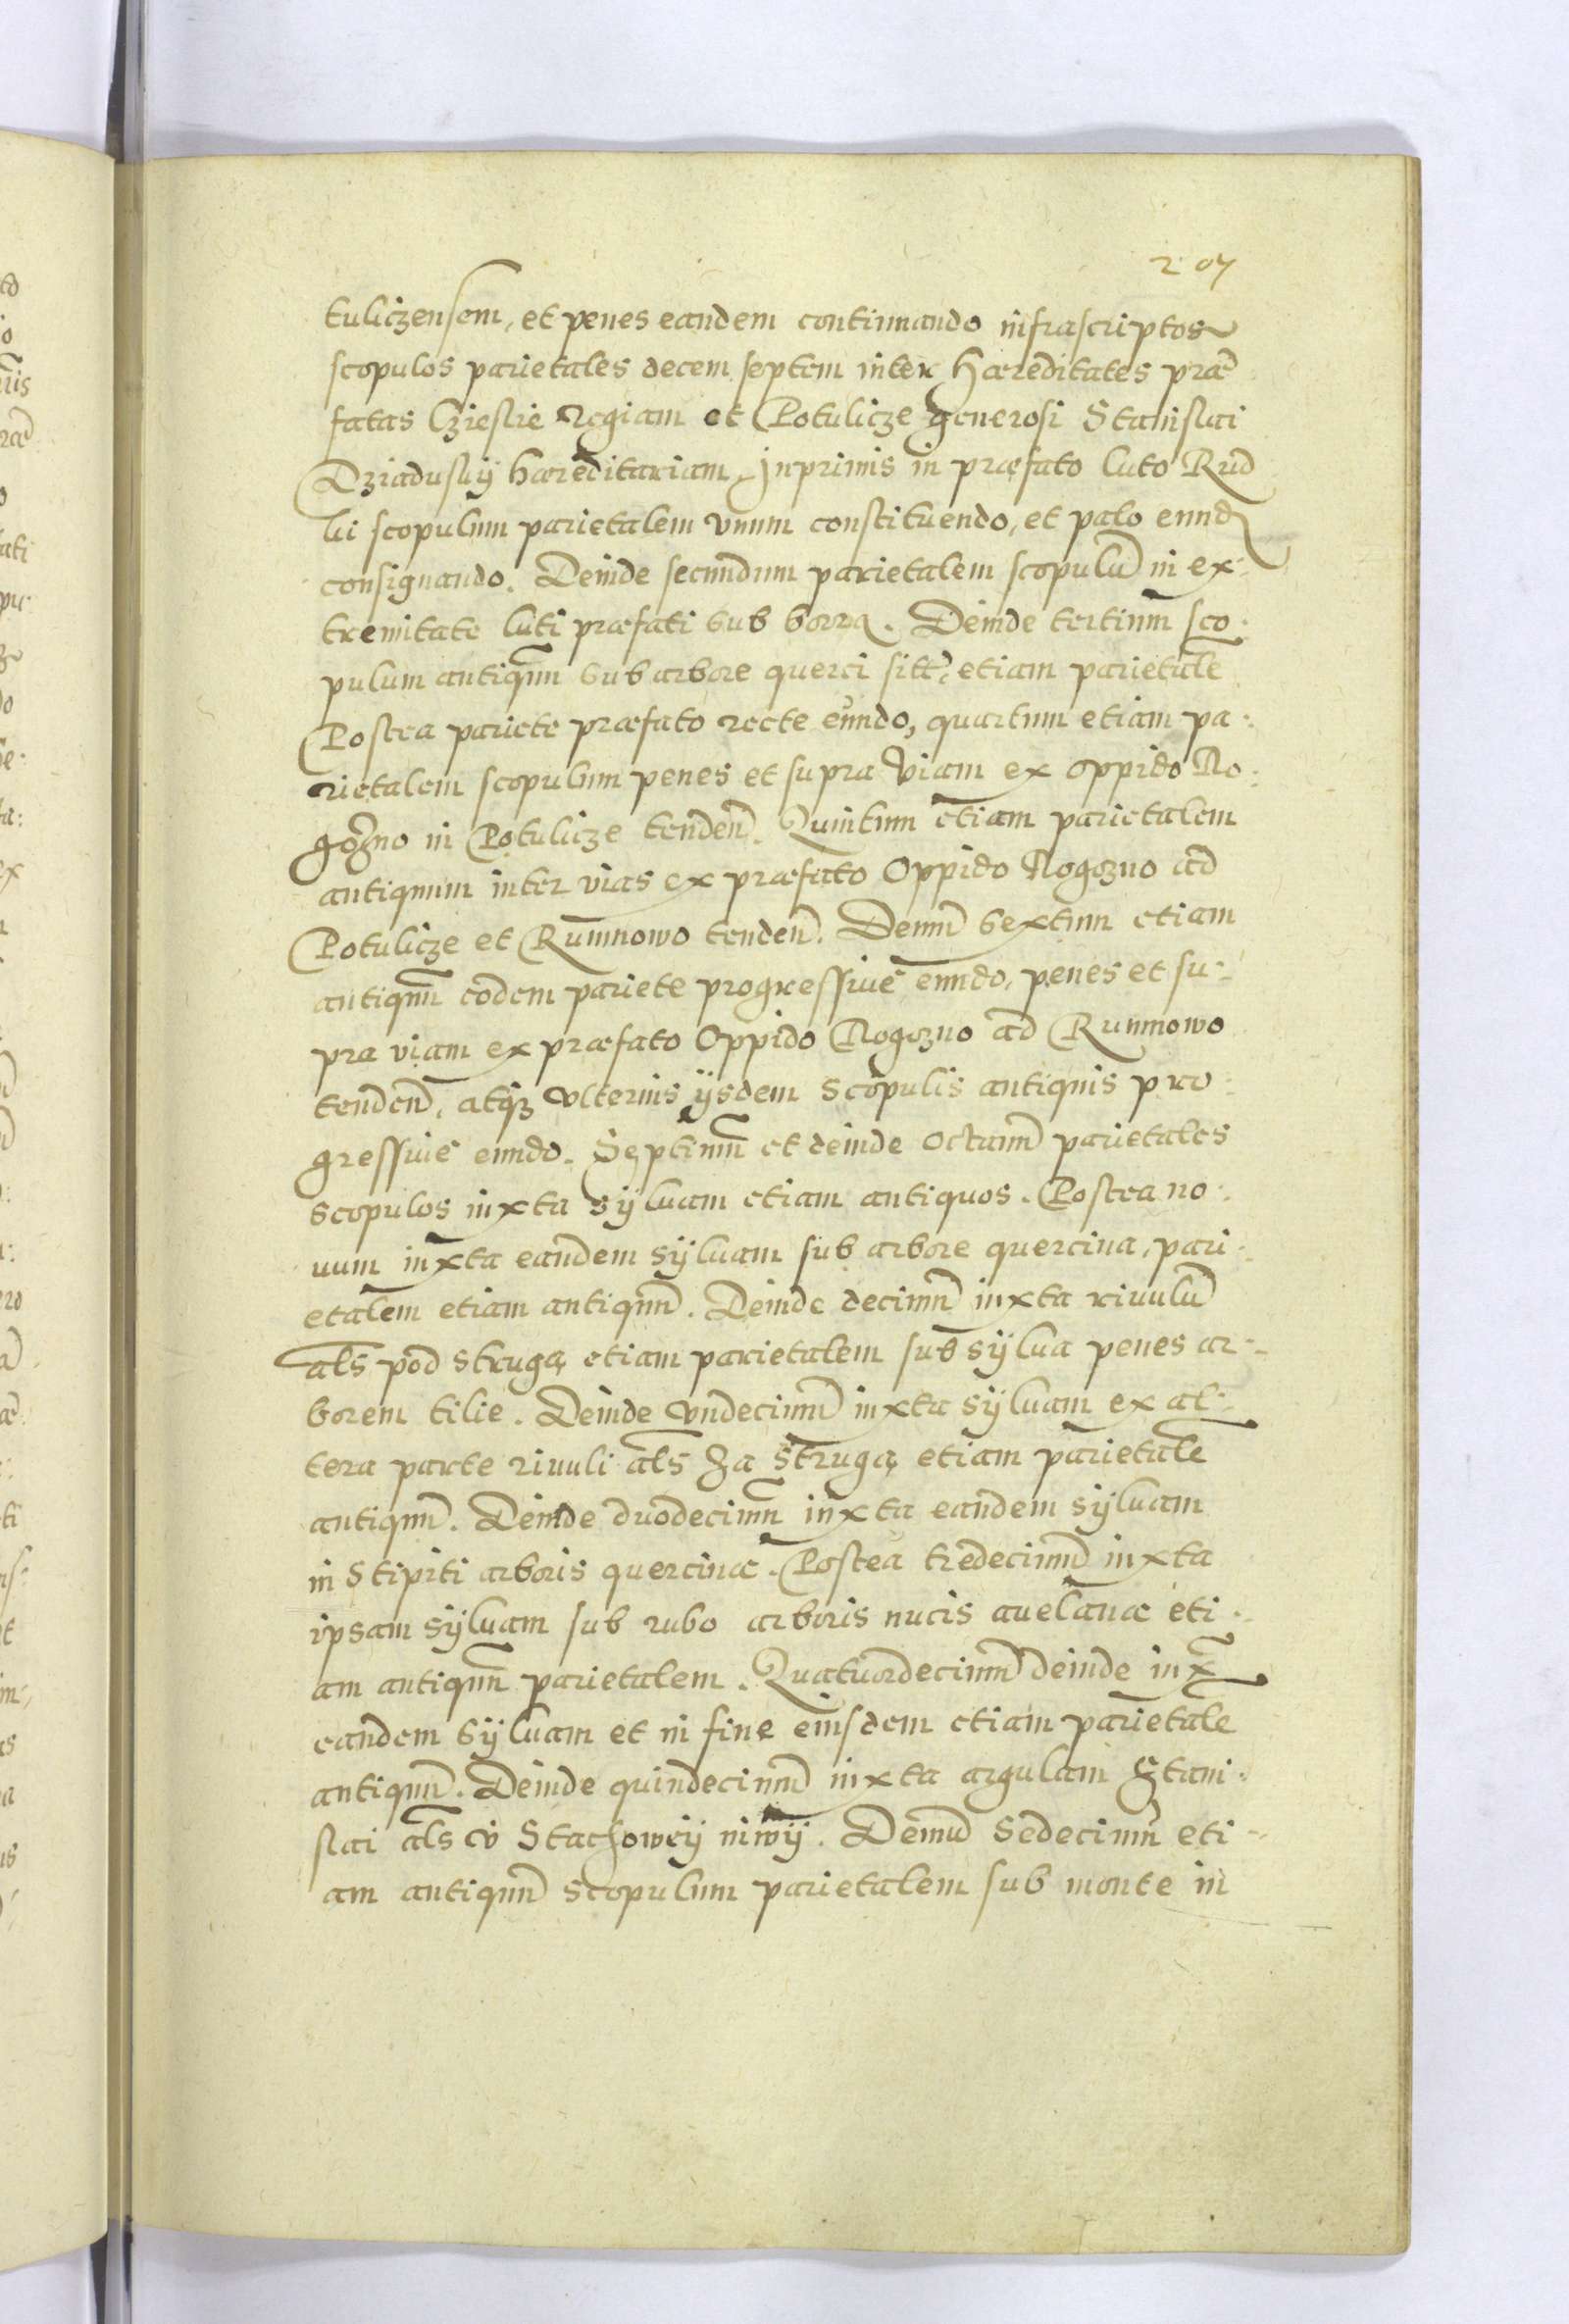 207
tuliczensem, et penes eandem continuando infrascriptos
scopulos parietales decem septem inter Hæreditates præ
fatas Cziesłie Regiam et Potulicze generosi Stanislai
Dziaduskÿ hæreditariam, Inprimis in præfato luto Rud
ki scopulum parietalem vnum constituendo, et palo eund
consignando. Deinde secundum parietalem scopulū in ex-
tremitate luti præfati sub borra. Deinde tertium sco-
pulum antiquū sub arbore querci sitt, etiam parietalē
Postea pariete præfato recte eundo, quartum etiam pa-
rietalem scopulum penes et supra viam ex oppido Ro-
gozno in Potulicze tendeñ. Quintum etiam parietalem
antiquum inter vias ex præfato Oppido Rogozno ad
Potulicze et Rumnowo tendeñ. Demū sextum etiam
antiquū eodem pariete progressiue eundo, penes et su-
pra viam ex præfato Oppido Rogozno ad Runnowo
tendeñ, atq̃ vlterius ÿsdem Scopulis antiquis pro-
gressiue eundo. Septimū et deinde Octauū parietales
scopulos iuxta sÿluam etiam antiquos. Postea no-
uum iuxta eandem sÿluam sub arbore quercina, pari-
etalem etiam antiquū. Deinde decimū iuxta riuulū
als̃ pod strugą etiam parietalem sub sÿlua penes ar-
borem tilie. Deinde vndecimū iuxta sÿluam ex al-
tera parte riuuli als̃ Za strugą etiam parietalē
antiquū. Deinde duodecimū iuxta eandem sÿluam
in Stipiti arboris quercinæ. Postea tredecimū iuxta
ipsam sÿluam sub rubo arboris nucis auelanæ eti-
am antiquū parietalem. Quatuordecimū deinde iux̃
eandem sÿluam et in fine eiusdem etiam parietalē
antiquū. Deinde quindecimū iuxta argulam Stani-
slai als̃ cv Stachowëÿ niwÿ. Demū Sedecimū eti-
am antiquū scopulum parietalem sub monte in